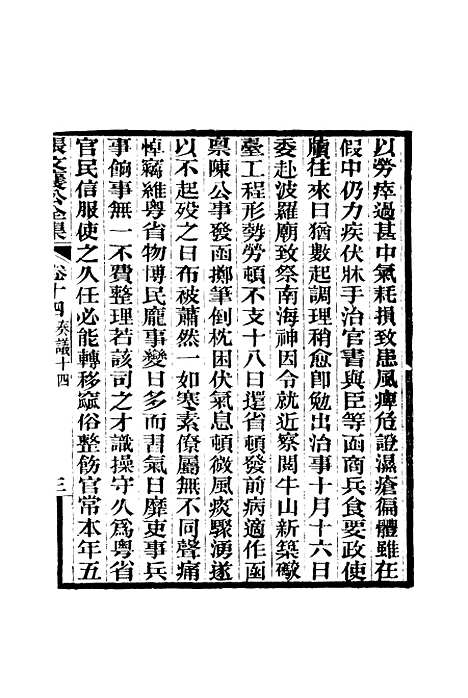 以勞瘁過甚中氣耗損致患風痺危證濕瘡徧體雖在
假中仍力疾伏牀手治官書與臣等函商兵食要政使
牘往來日猶數起調理稍愈卽勉出治事十月十六日
委赴波羅廟致祭南海神因令就近察閱牛山新築礮
臺工程形勢勞頓不支十八日還省頓發前病適作函
稟陳公事發函擲筆倒枕困伏氣息頓微風痰驟湧遂
以不起歿之日布被蕭然一如寒素僚屬無不同聲痛
悼竊維粤省物博民龐事變日多而習氣日靡吏事兵
事餉事無一不費整理若該司之才識操守久爲粤省
官民信服使之久任必能轉移窳俗整飭官常本年五
張文襄公全集
卷十四 奏議十四
三